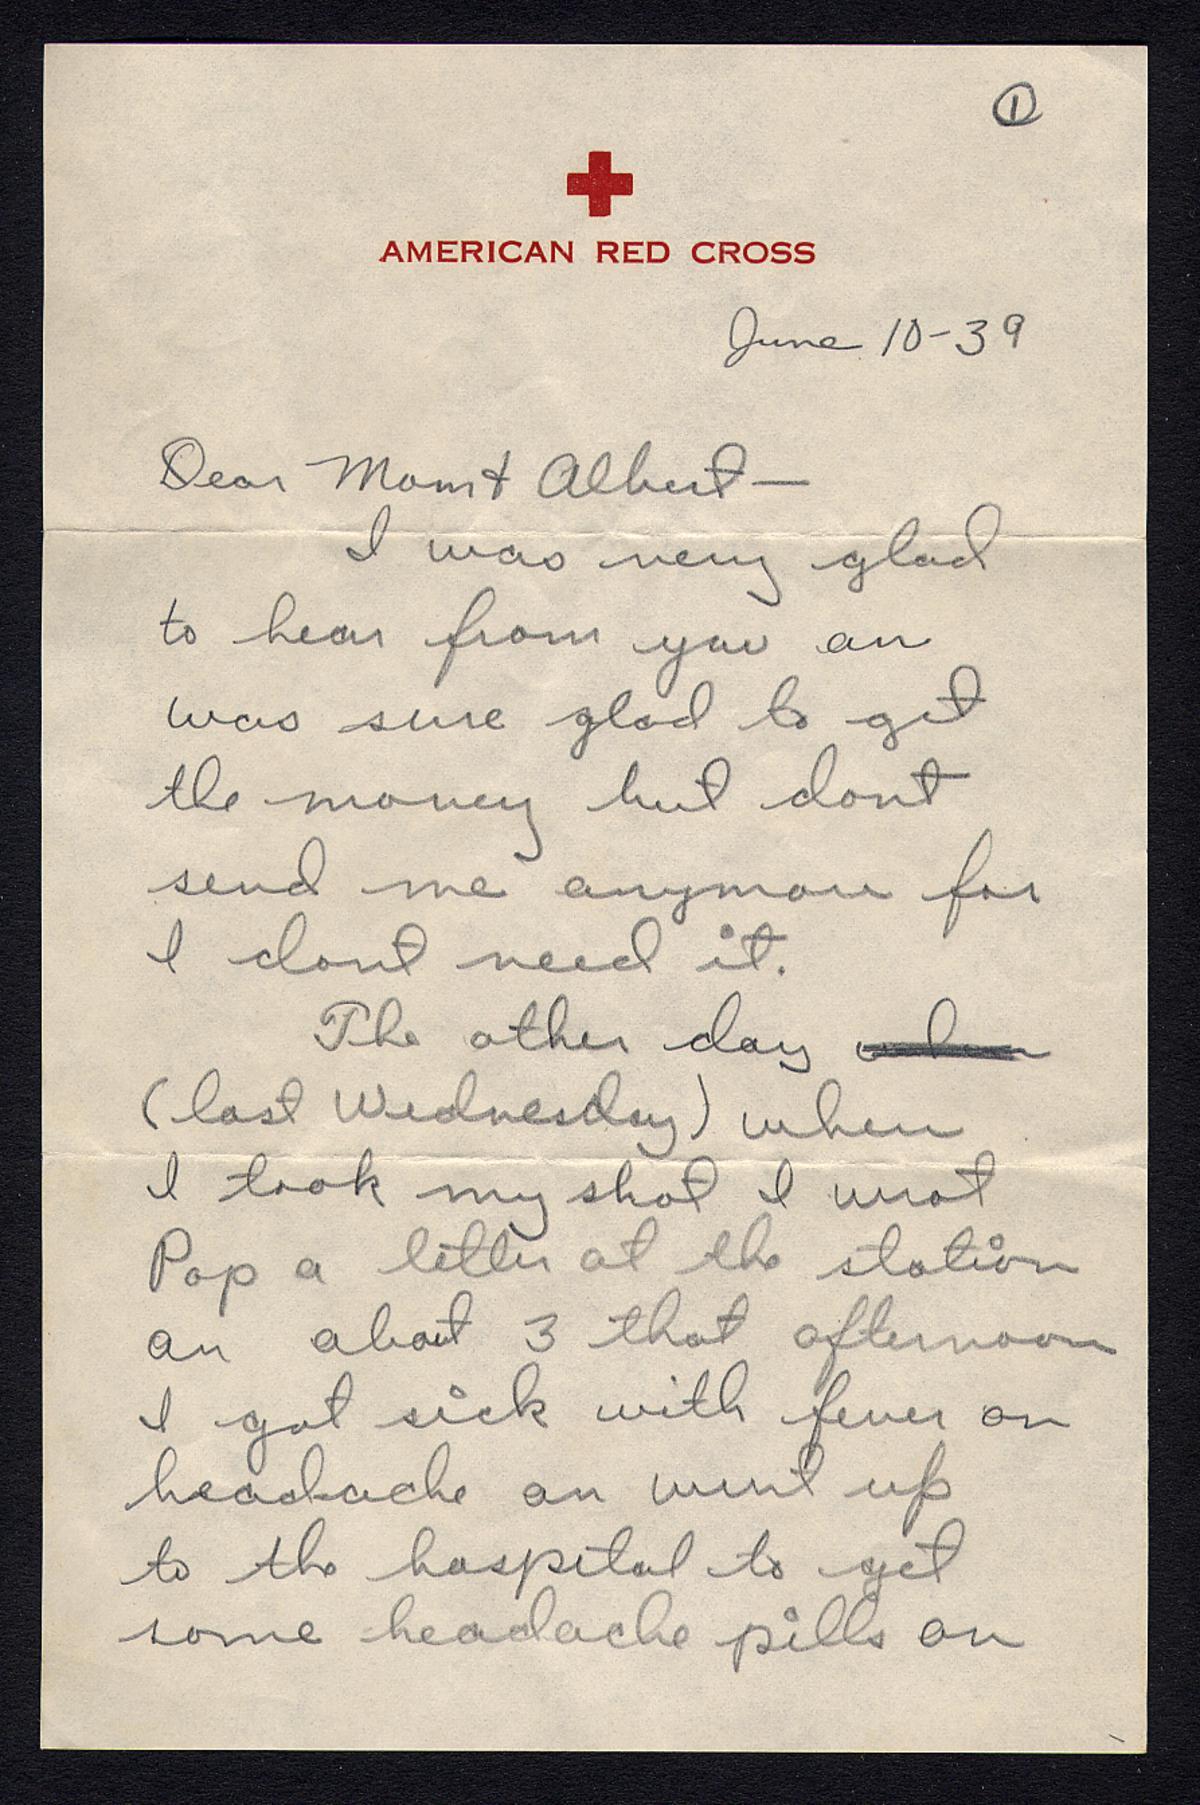 ①
AMERICAN RED CROSS
June 10-39
Dear Mom & Albert—
I was very glad
to hear from you an
was sure glad to get
the money but dont
send me anymore for
I dont need it.
The other day when
(last Wednesday) when
I took my shot I wrot
Pop a letter at the station
an about 3 that afternoon
I got sick with fever an
headache an went up
to the hospital to get
some headache pills an